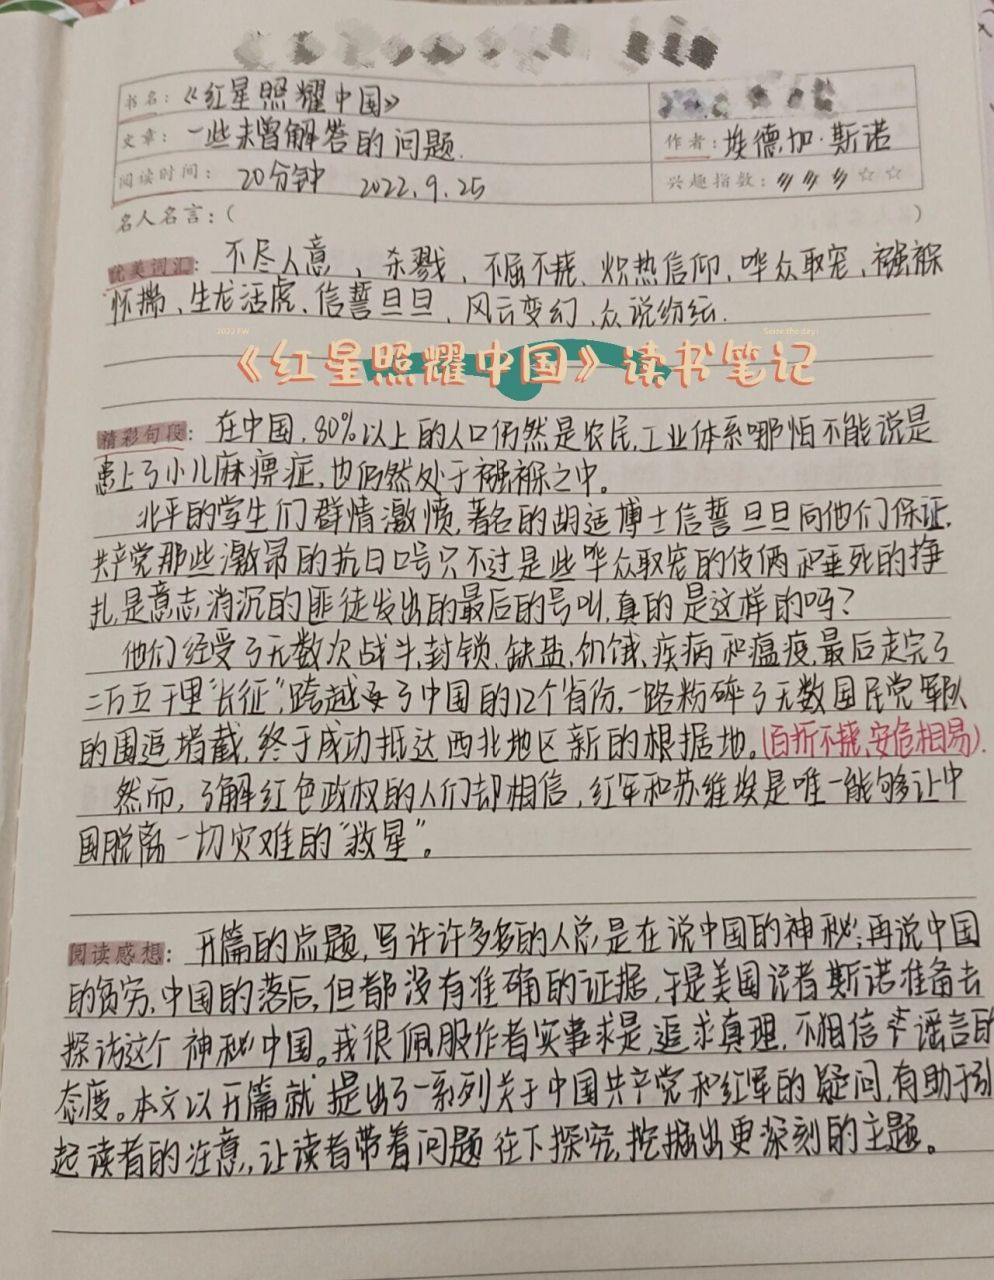 书名：《红星照耀中国》
文章：一些未曾解答的问题.
作者：埃德加·斯诺
阅读时间：20分钟 2022.9.25
兴趣指数：☆☆
名人名言：（ ）
优美词汇：不尽人意、杀戮、不屈不挠、炽热信仰、哗众取宠、襁褓
怀揣、生龙活虎、信誓旦旦、风云变幻、众说纷纭.
2022 FW
Seize the day!
《红星照耀中国》读书笔记
精彩句段：在中国，80%以上的人口仍然是农民，工业体系哪怕不能说是
患上了小儿麻痹症，也仍然处于襁褓之中。
北平的学生们群情激愤，著名的胡适博士信誓旦旦向他们保证，
共产党那些激昂的抗日口号只不过是些哗众取宠的伎俩和垂死的挣
扎，是意志消沉的匪徒发出的最后的号叫，真的是这样的吗？
他们经受了无数次战斗，封锁，缺盐，饥饿，疾病和瘟疫，最后走完了
二万五千里“长征”，跨越了中国的12个省份，一路粉碎了无数国民党军队
的围追堵截，终于成功抵达西北地区新的根据地。(百折不挠，安危相易).
然而，了解红色政权的人们却相信，红军和苏维埃是唯一能够让中
国脱离一切灾难的“救星”。
阅读感想：开篇的点题，写许许多多的人总是在说中国的神秘；再说中国
的贫穷，中国的落后，但都没有准确的证据，于是美国记者斯诺准备去
探访这个神秘中国。我很佩服作者实事求是，追求真理，不相信谣言的
态度。本文以开篇就提出了一系列关于中国共产党和红军的疑问，有助于引
起读者的注意，让读者带着问题往下探究，挖掘出更深刻的主题。